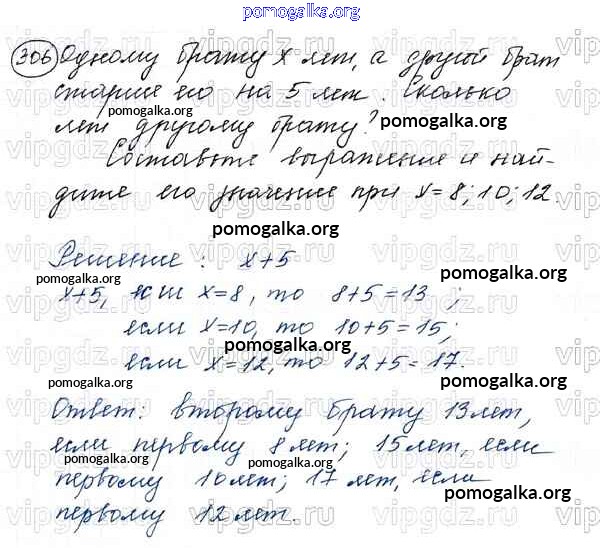 pomogalka.org
306 Одному брату x лет, а другой брат
старше его на 5 лет. Сколько
pomogalka.org
лет другому брату? pomogalka.org
Составьте выражение и най-
дите его значение при x=8; 10; 12.
pomogalka.org
Решение: x+5
pomogalka.org pomogalka.org
x+5, если x=8, то 8+5=13;
если x=10, то 10+5=15;
pomogalka.org
если x=12, то 12+5=17.
pomogalka.org pomogalka.org
Ответ: второму брату 13 лет,
pomogalka.org
если первому 8 лет; 15 лет, если
pomogalka.org pomogalka.org
первому 10 лет; 17 лет, если
pomogalka.org
первому 12 лет.
pomogalka.org